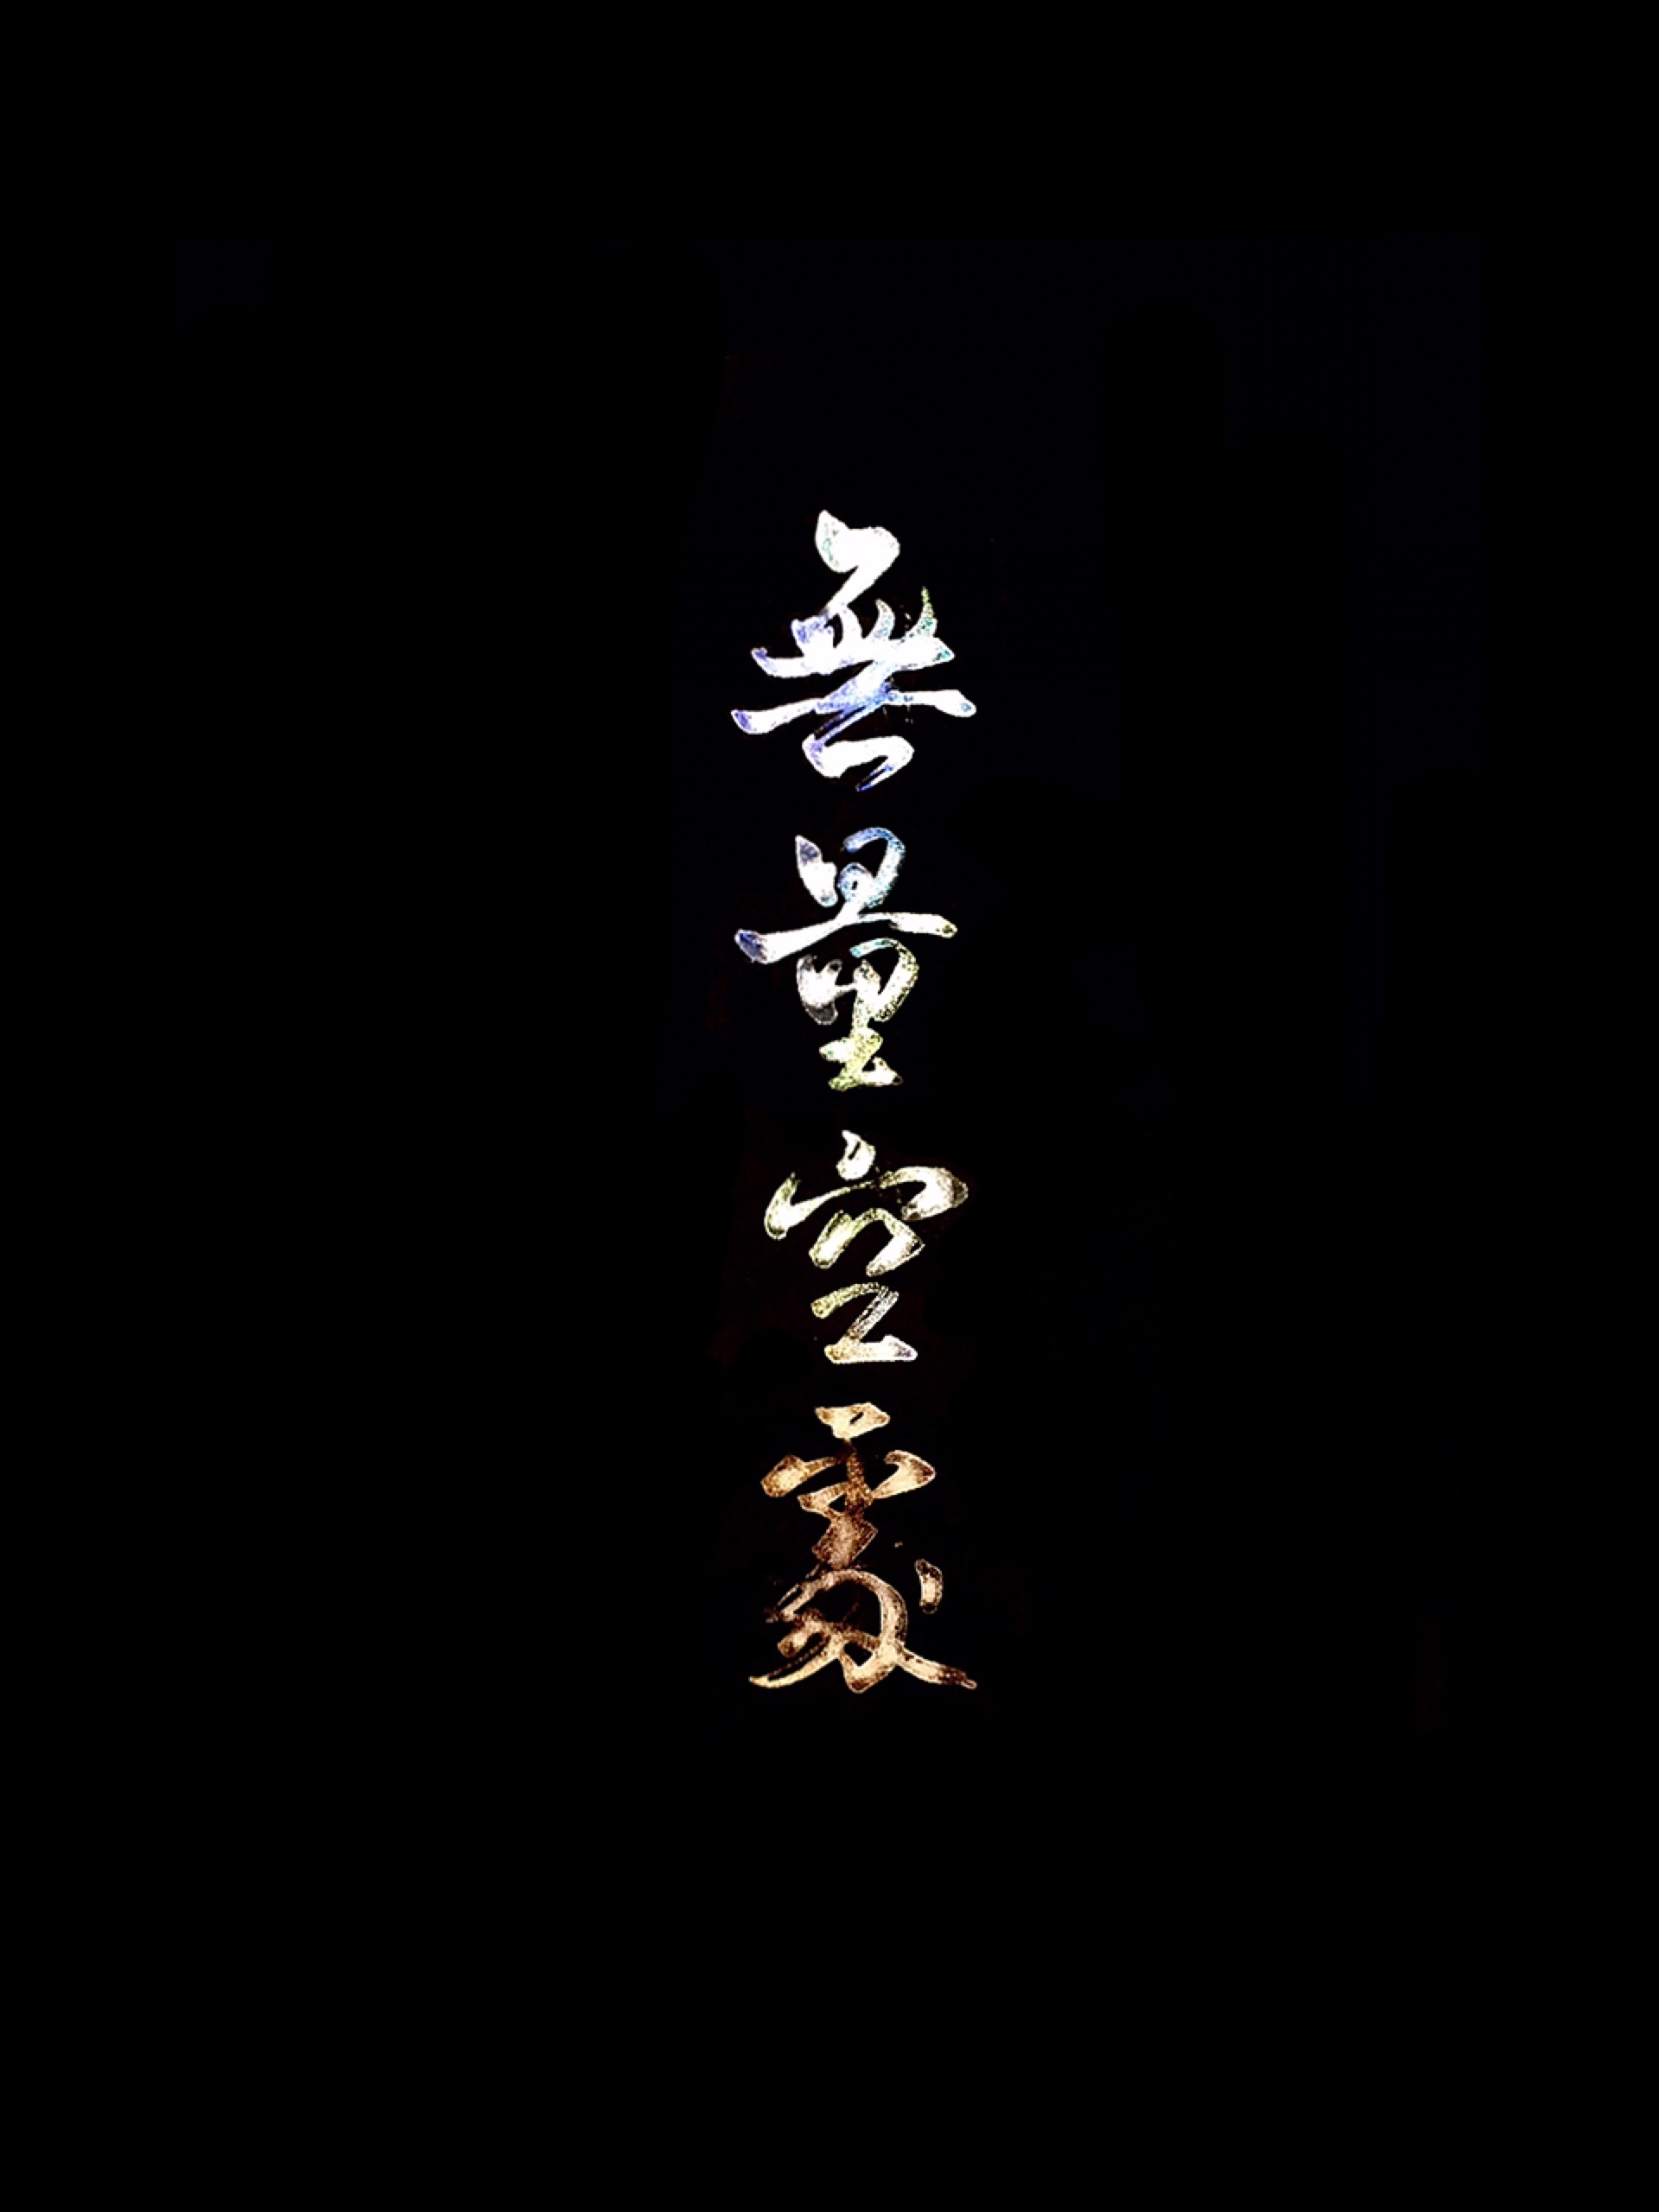 無量空處